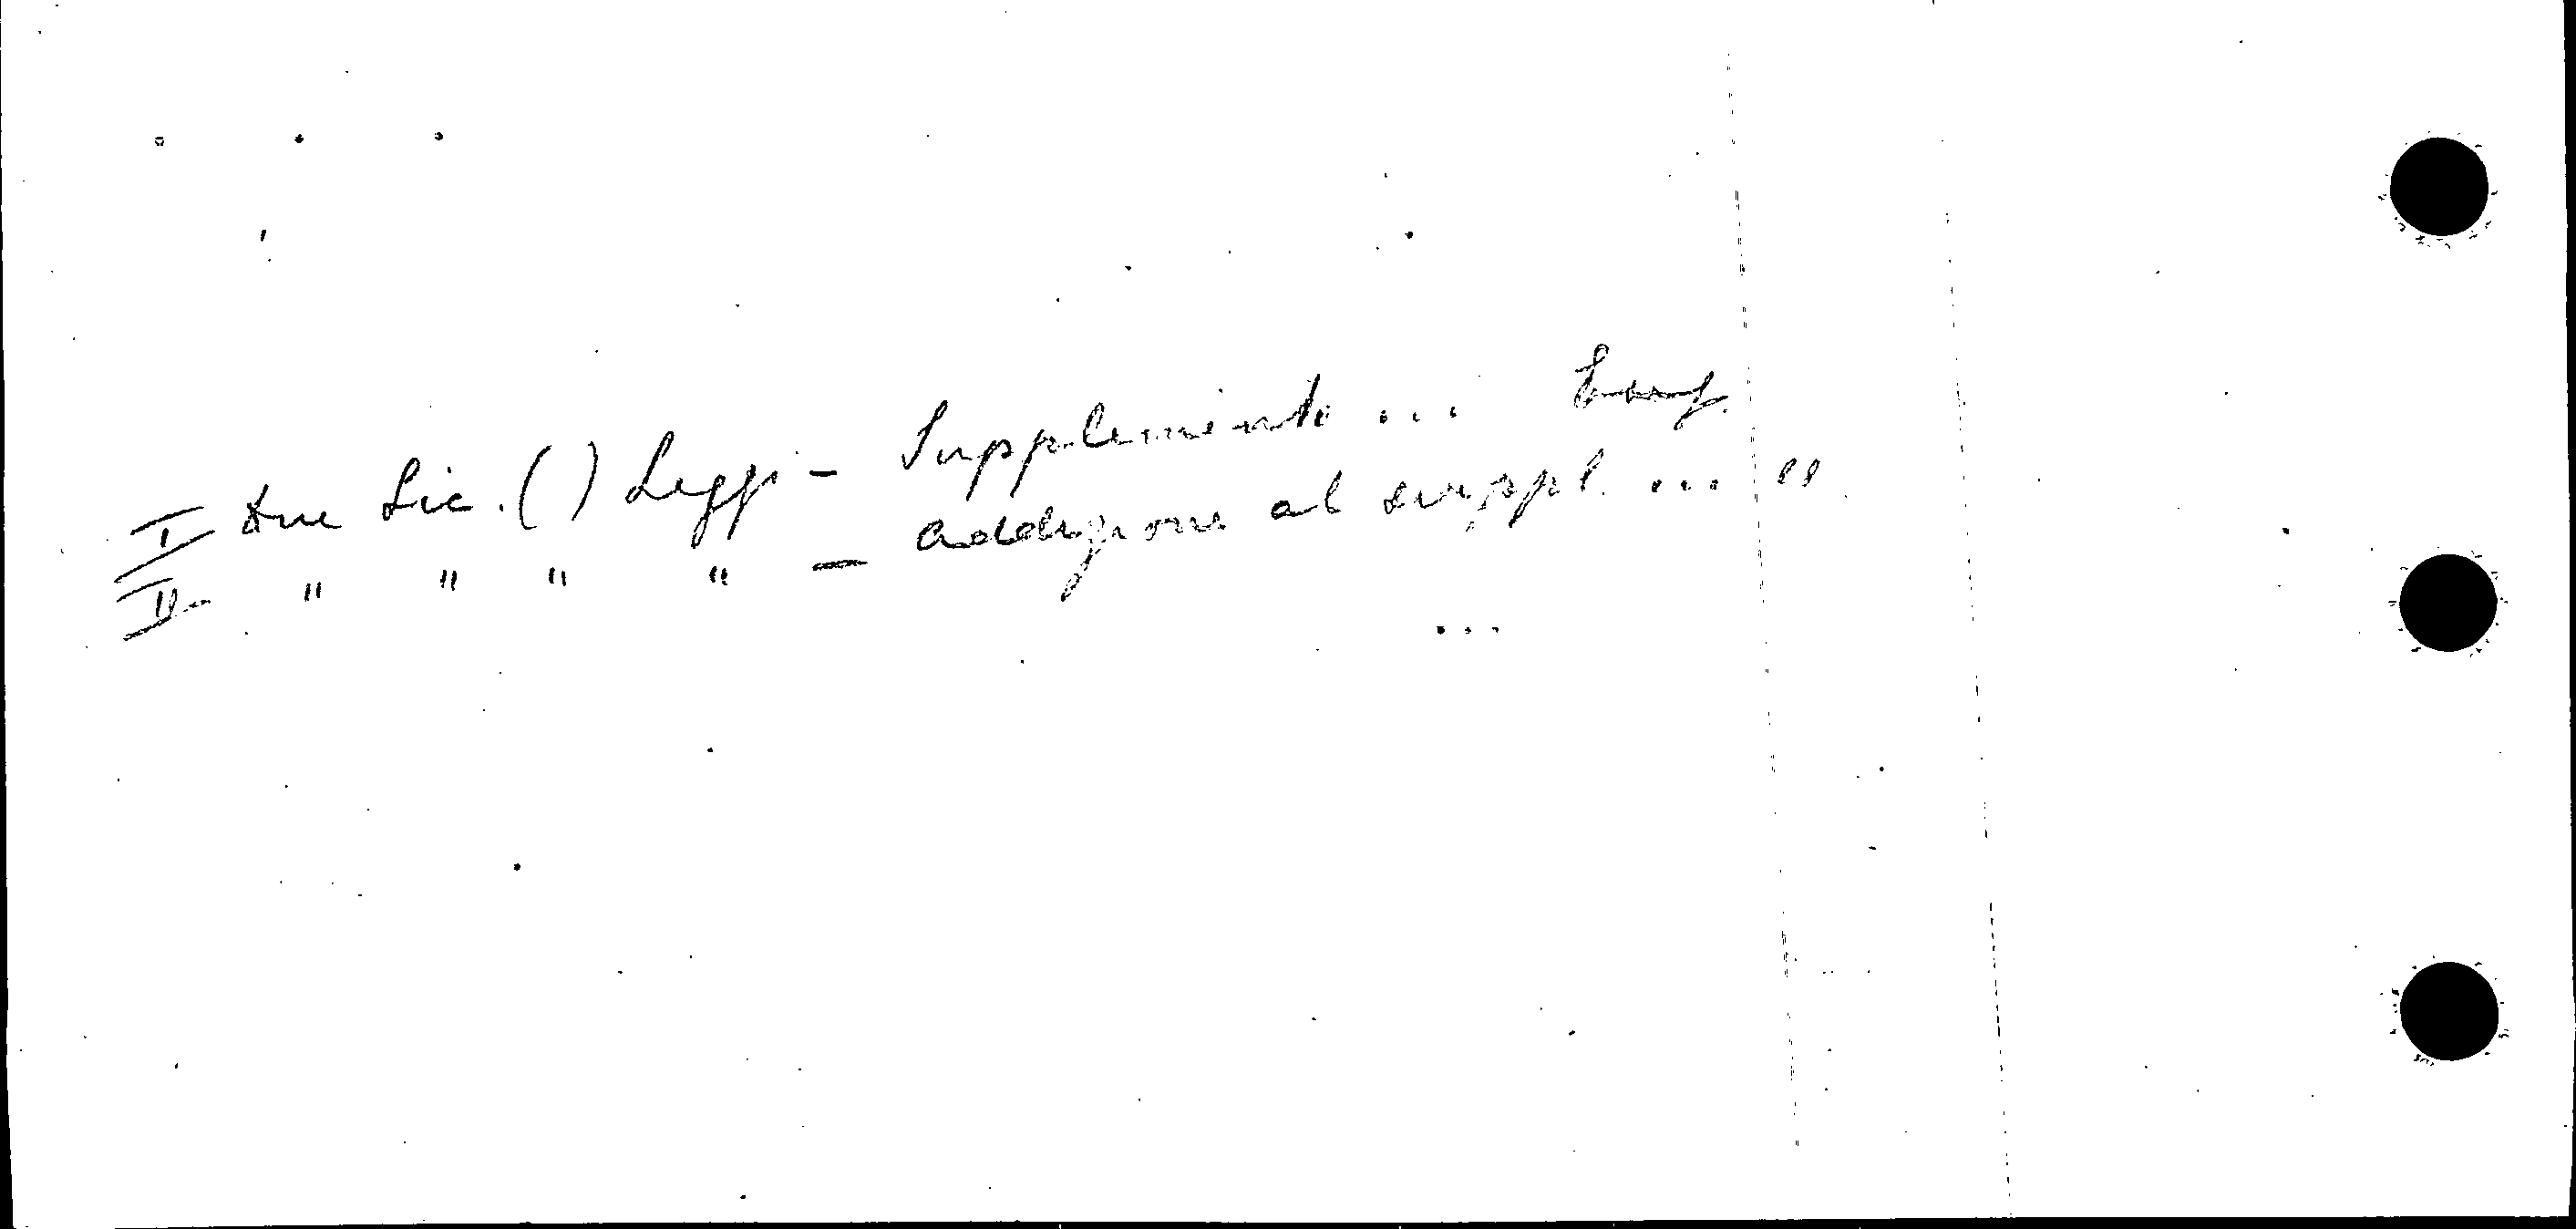 I Due Sic. () Leggi - Supplemento ...
II - " " " " - addizione al suppl. ... "
...